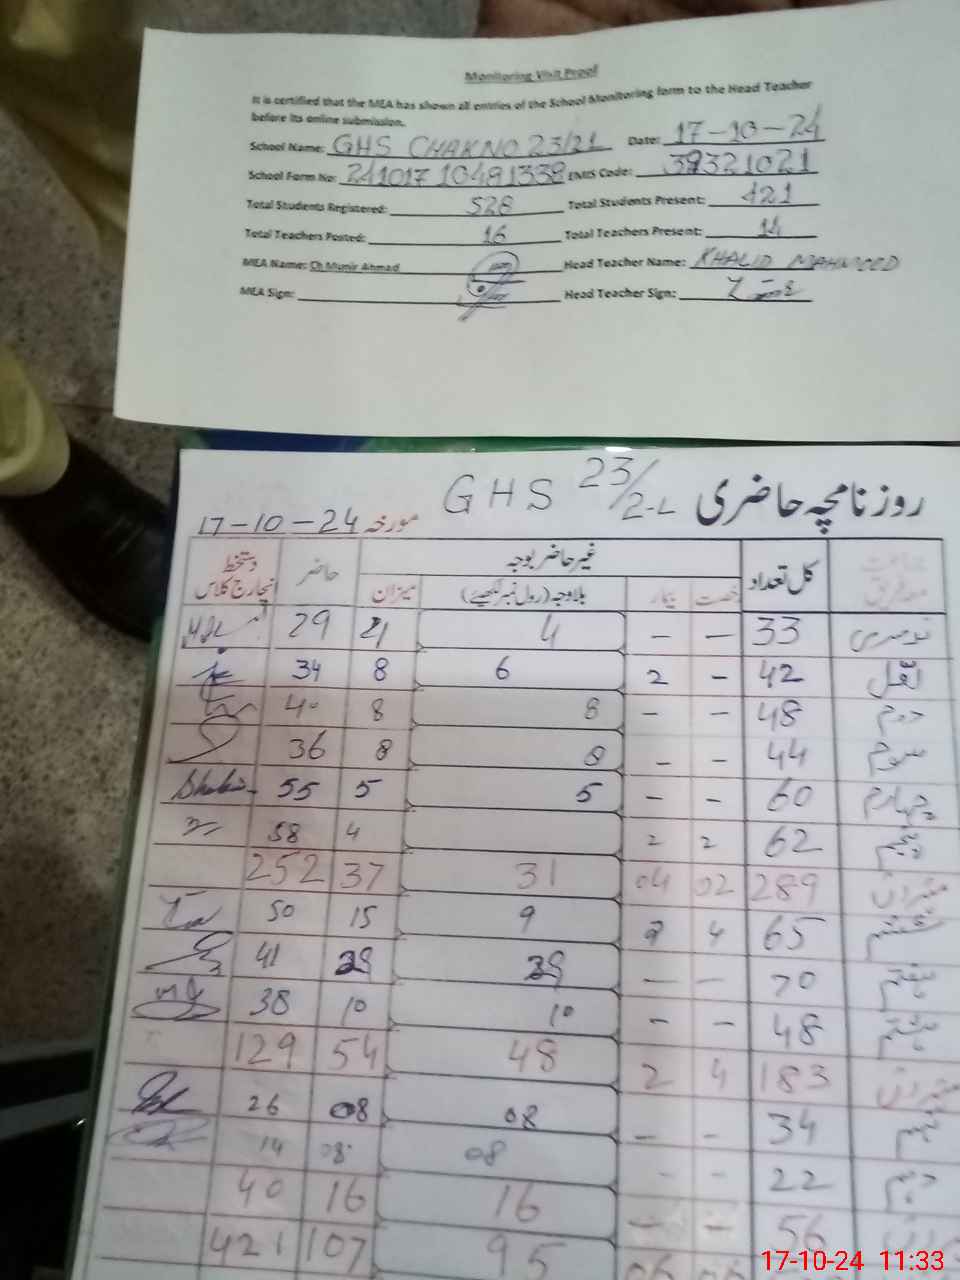 Monitoring Visit Proof
It is certified that the MEA has shown all entries of the School Monitoring form to the Head Teacher
before its online submission.
School Name: GHS CHAK NO 23/21 Date: 17-10-24
School Form No: 24101710481338 EMIS Code: 39321021
Total Students Registered: 528 Total Students Present: 421
Total Teachers Posted: 16 Total Teachers Present: 14
MEA Name: Ch Munir Ahmad Head Teacher Name: KHALID MAHMOOD
MEA Sign: Head Teacher Sign:
روزنامچہ حاضری GHS 23/2-L مورخہ 17-10-24
کل تعداد غیر حاضر بوجہ حاضر دستخط انچارج کلاس
رخصت بیمار بلاوجہ (رول نمبر لکھیئے) میزان
33 — — 4 4 29
42 - 2 6 8 34
دوم 48 - - 8 8 40
سوم 44 - - 8 8 36
چہارم 60 - - 5 5 55
پنجم 62 2 2 4 58
289 02 04 31 37 252
ششم 65 4 2 9 15 50
ہفتم 70 - - 29 29 41
ہشتم 48 - - 10 10 38
183 4 2 48 54 129
نہم 34 - - 08 08 26
دہم 22 - - 08 08 14
56 - - 16 16 40
06 95 107 421
17-10-24 11:33